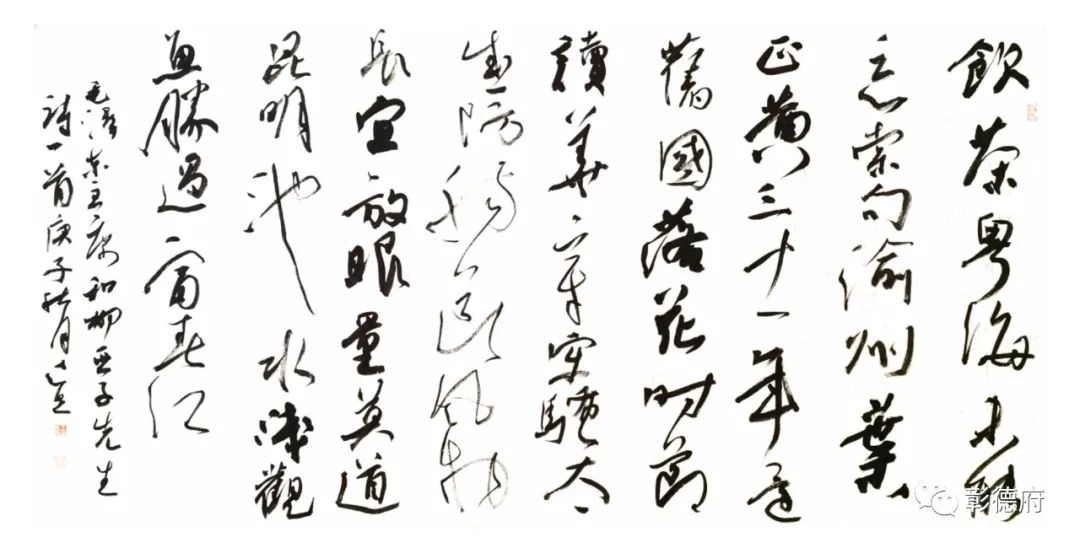 飲茶粵海未能
忘索句渝州葉
正黄三十一年還
舊國落花时節
讀華章牢騷太
盛防腸斷風物
長宜放眼量莫道
昆明池水淺觀
魚勝過富春江
毛澤東主席和柳亞子先生
詩一首庚子秋月
彰德府